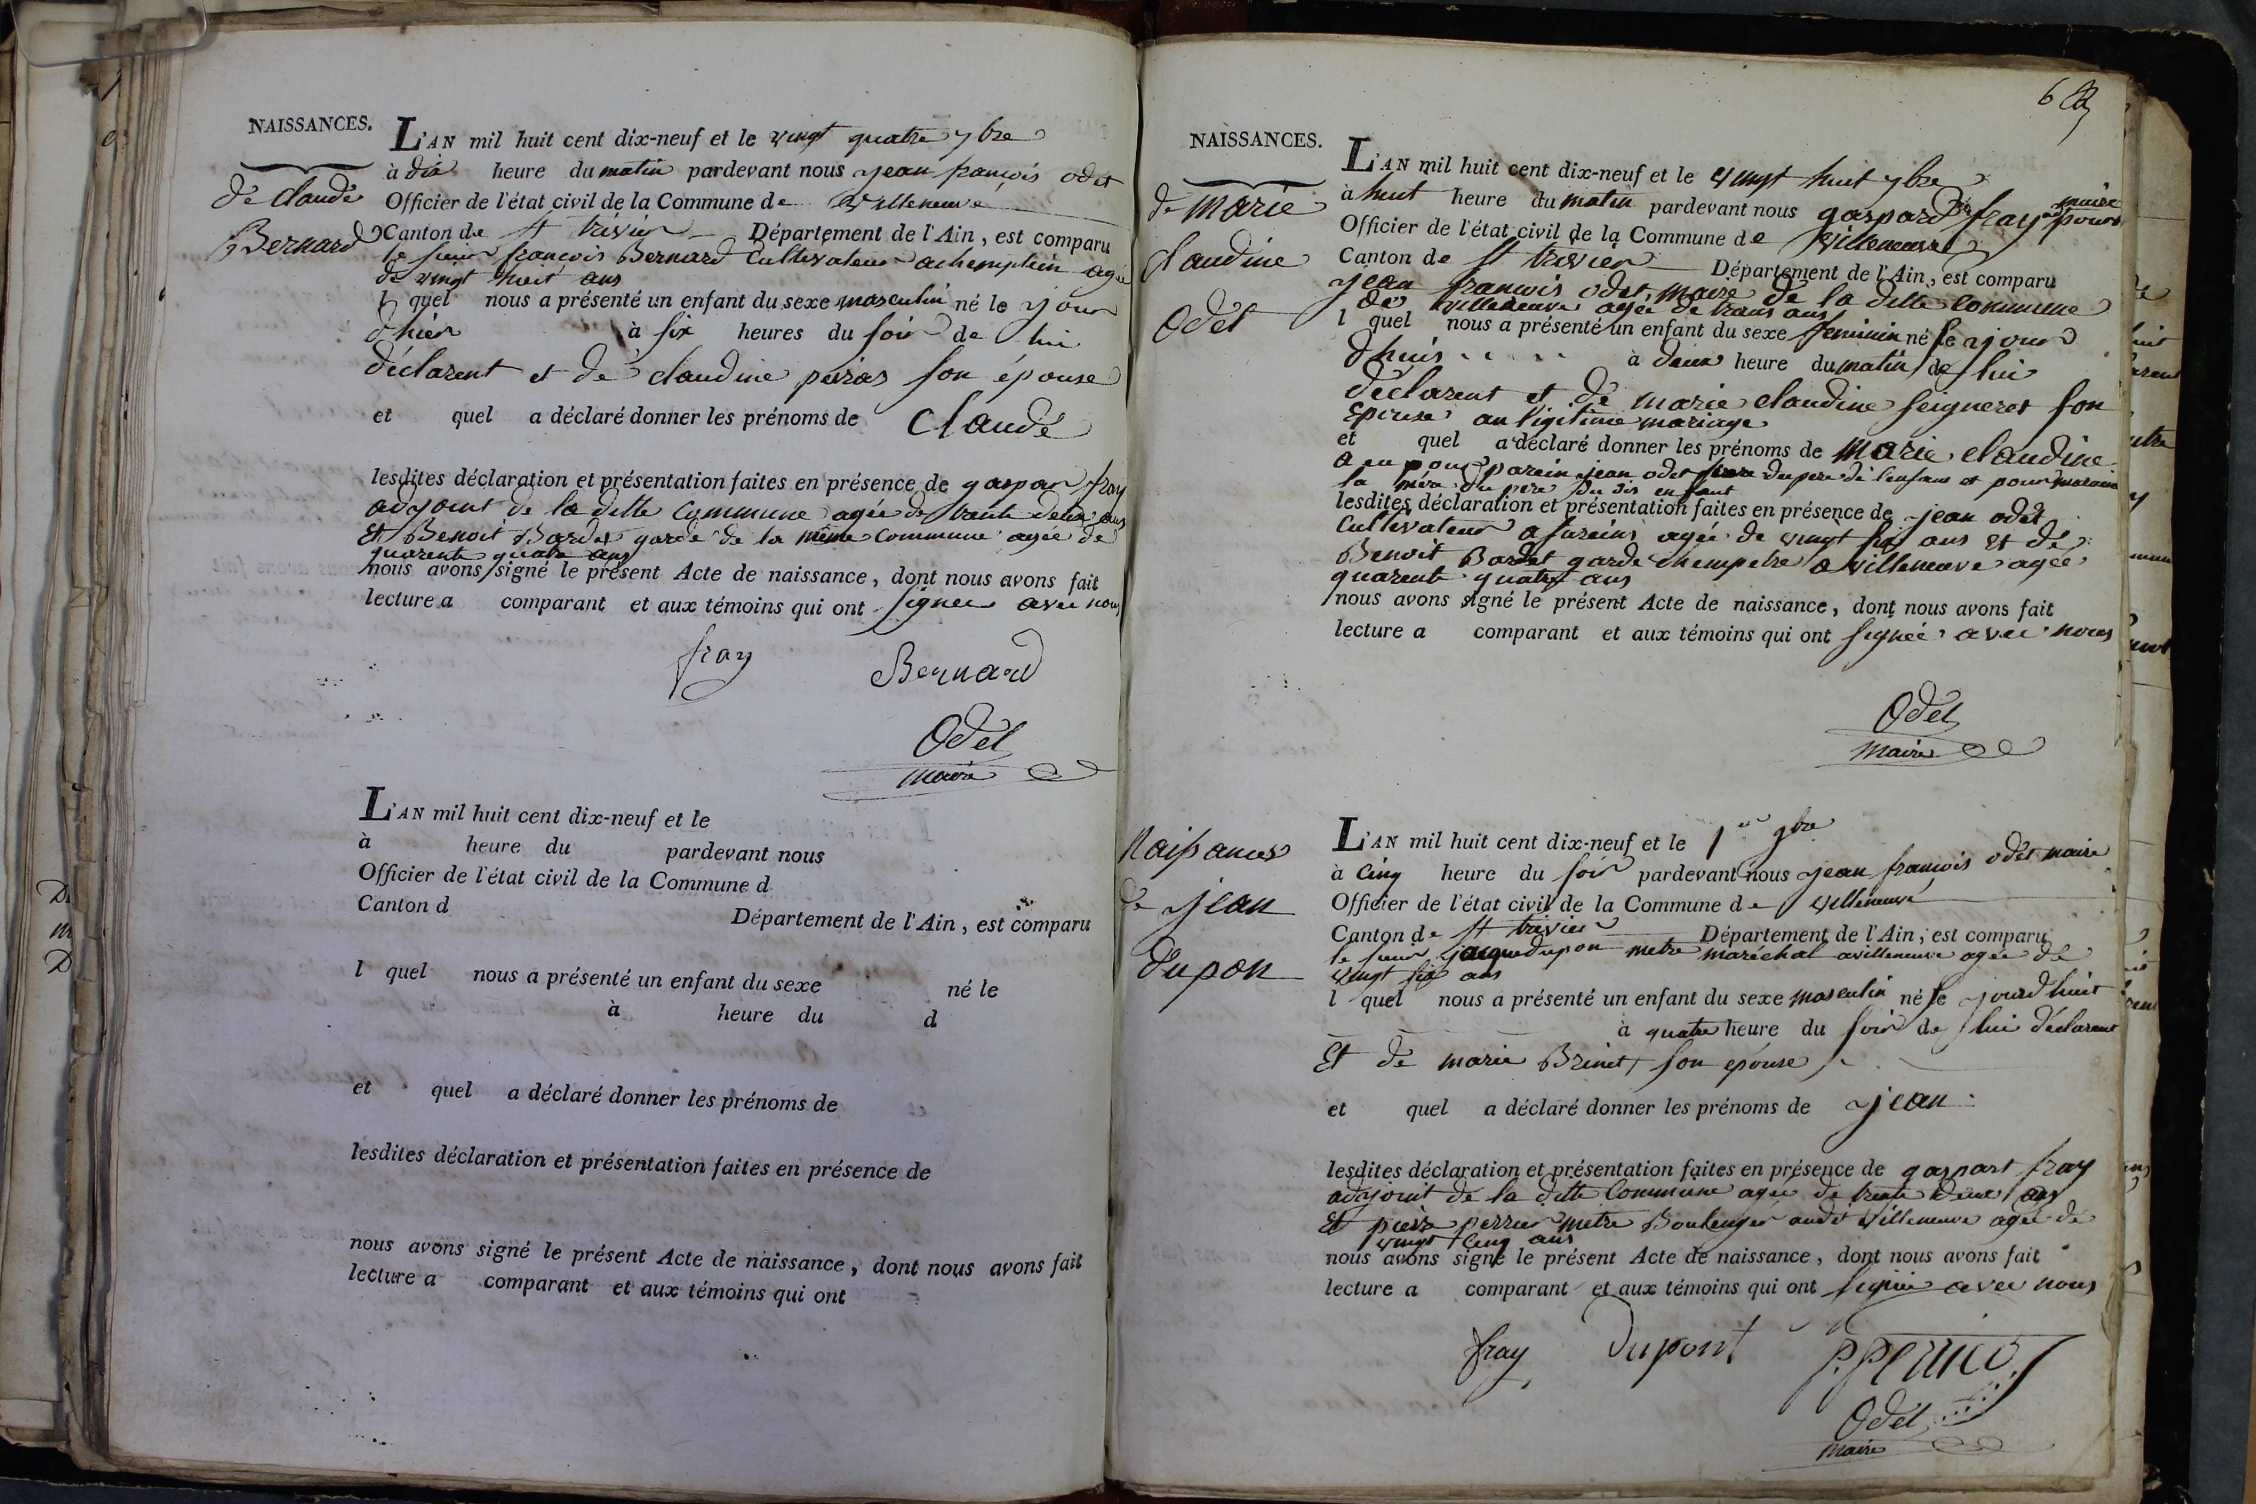 NAISSANCES.
de claude
Bernard
L'AN mil huit cent dix-neuf et le vingt quatre 7bre
à dix heure du matin pardevant nous jean françois odet
Officier de l'état civil de la Commune de villeneuve
Canton de st trivier Département de l'Ain, est comparu
le sieur françois Bernard Cultivateur achemplein agée
de vingt huit ans
l quel nous a présenté un enfant du sexe masculin né le jour
d'hier à six heures du soir de lui
déclarent et de claudine peiras son épouse
et quel a déclaré donner les prénoms de claude
lesdites déclaration et présentation faites en présence de gaspar fray
adjoint de la ditte Commune agée de trante deux ans
Et Benoit Bordet garde de la même commune agée de
quarente quatre ans
nous avons signé le présent Acte de naissance, dont nous avons fait
lecture a comparant et aux témoins qui ont signee avec nous
fray Bernard
Odet
maire
L'AN mil huit cent dix-neuf et le
à heure du pardevant nous
Officier de l'état civil de la Commune d
Canton d Département de l'Ain, est comparu
l quel nous a présenté un enfant du sexe né le
à heure du d
et quel a déclaré donner les prénoms de
lesdites déclaration et présentation faites en présence de
nous avons signé le présent Acte de naissance, dont nous avons fait
lecture a comparant et aux témoins qui ont
6
NAISSANCES.
de marie
claudine
Odet
L'AN mil huit cent dix-neuf et le vingt huit 7bre
à huit heure du matin pardevant nous gaspard fray pour maire
Officier de l'état civil de la Commune de villeneuve
Canton de st trivier Département de l'Ain, est comparu
jean francois odet maire de la ditte commune
de villeneuve agée de trans ans
l quel nous a présenté un enfant du sexe feminin né le jour
d'huis à deux heure du matin de lui
déclarent et de marie claudine seigneret son
Epouse an ligitime mariage
et quel a déclaré donner les prénoms de marie claudine
a eu pour parein jean odet frere du pere de l'enfans et pour maraine
la mere du pere du dis enfant
lesdites déclaration et présentation faites en présence de jean odet
Cultivateur a fareins agée de vingt six ans et de
Benoit Bordet garde chempetre a villeneuve agée
quarente quatre ans
nous avons signé le présent Acte de naissance, dont nous avons fait
lecture a comparant et aux témoins qui ont signée avec nous
Odet
maire
Naissances
de jean
dupon
L'AN mil huit cent dix-neuf et le 1er 9bre
à cinq heure du soir pardevant nous jean francois odet maire
Officier de l'état civil de la Commune de villeneuve
Canton de st trivier Département de l'Ain, est comparu
le sieur jaque dupon metre maréchal avilleneuve agée de
vingt six ans
l quel nous a présenté un enfant du sexe masculin né le jourd'huit
à quatre heure du soir de lui déclarent
Et de marie Brinet son epouse
et quel a déclaré donner les prénoms de jean
lesdites déclaration et présentation faites en présence de gaspart fray
adjoint de la ditte Commune agée de trente deux ans
Et pierre perrier metre Boulenger audit villeneuve agée de
vingt Cinq ans
nous avons signé le présent Acte de naissance, dont nous avons fait
lecture a comparant et aux témoins qui ont signée avec nous
fray Dupont
Odet
maire